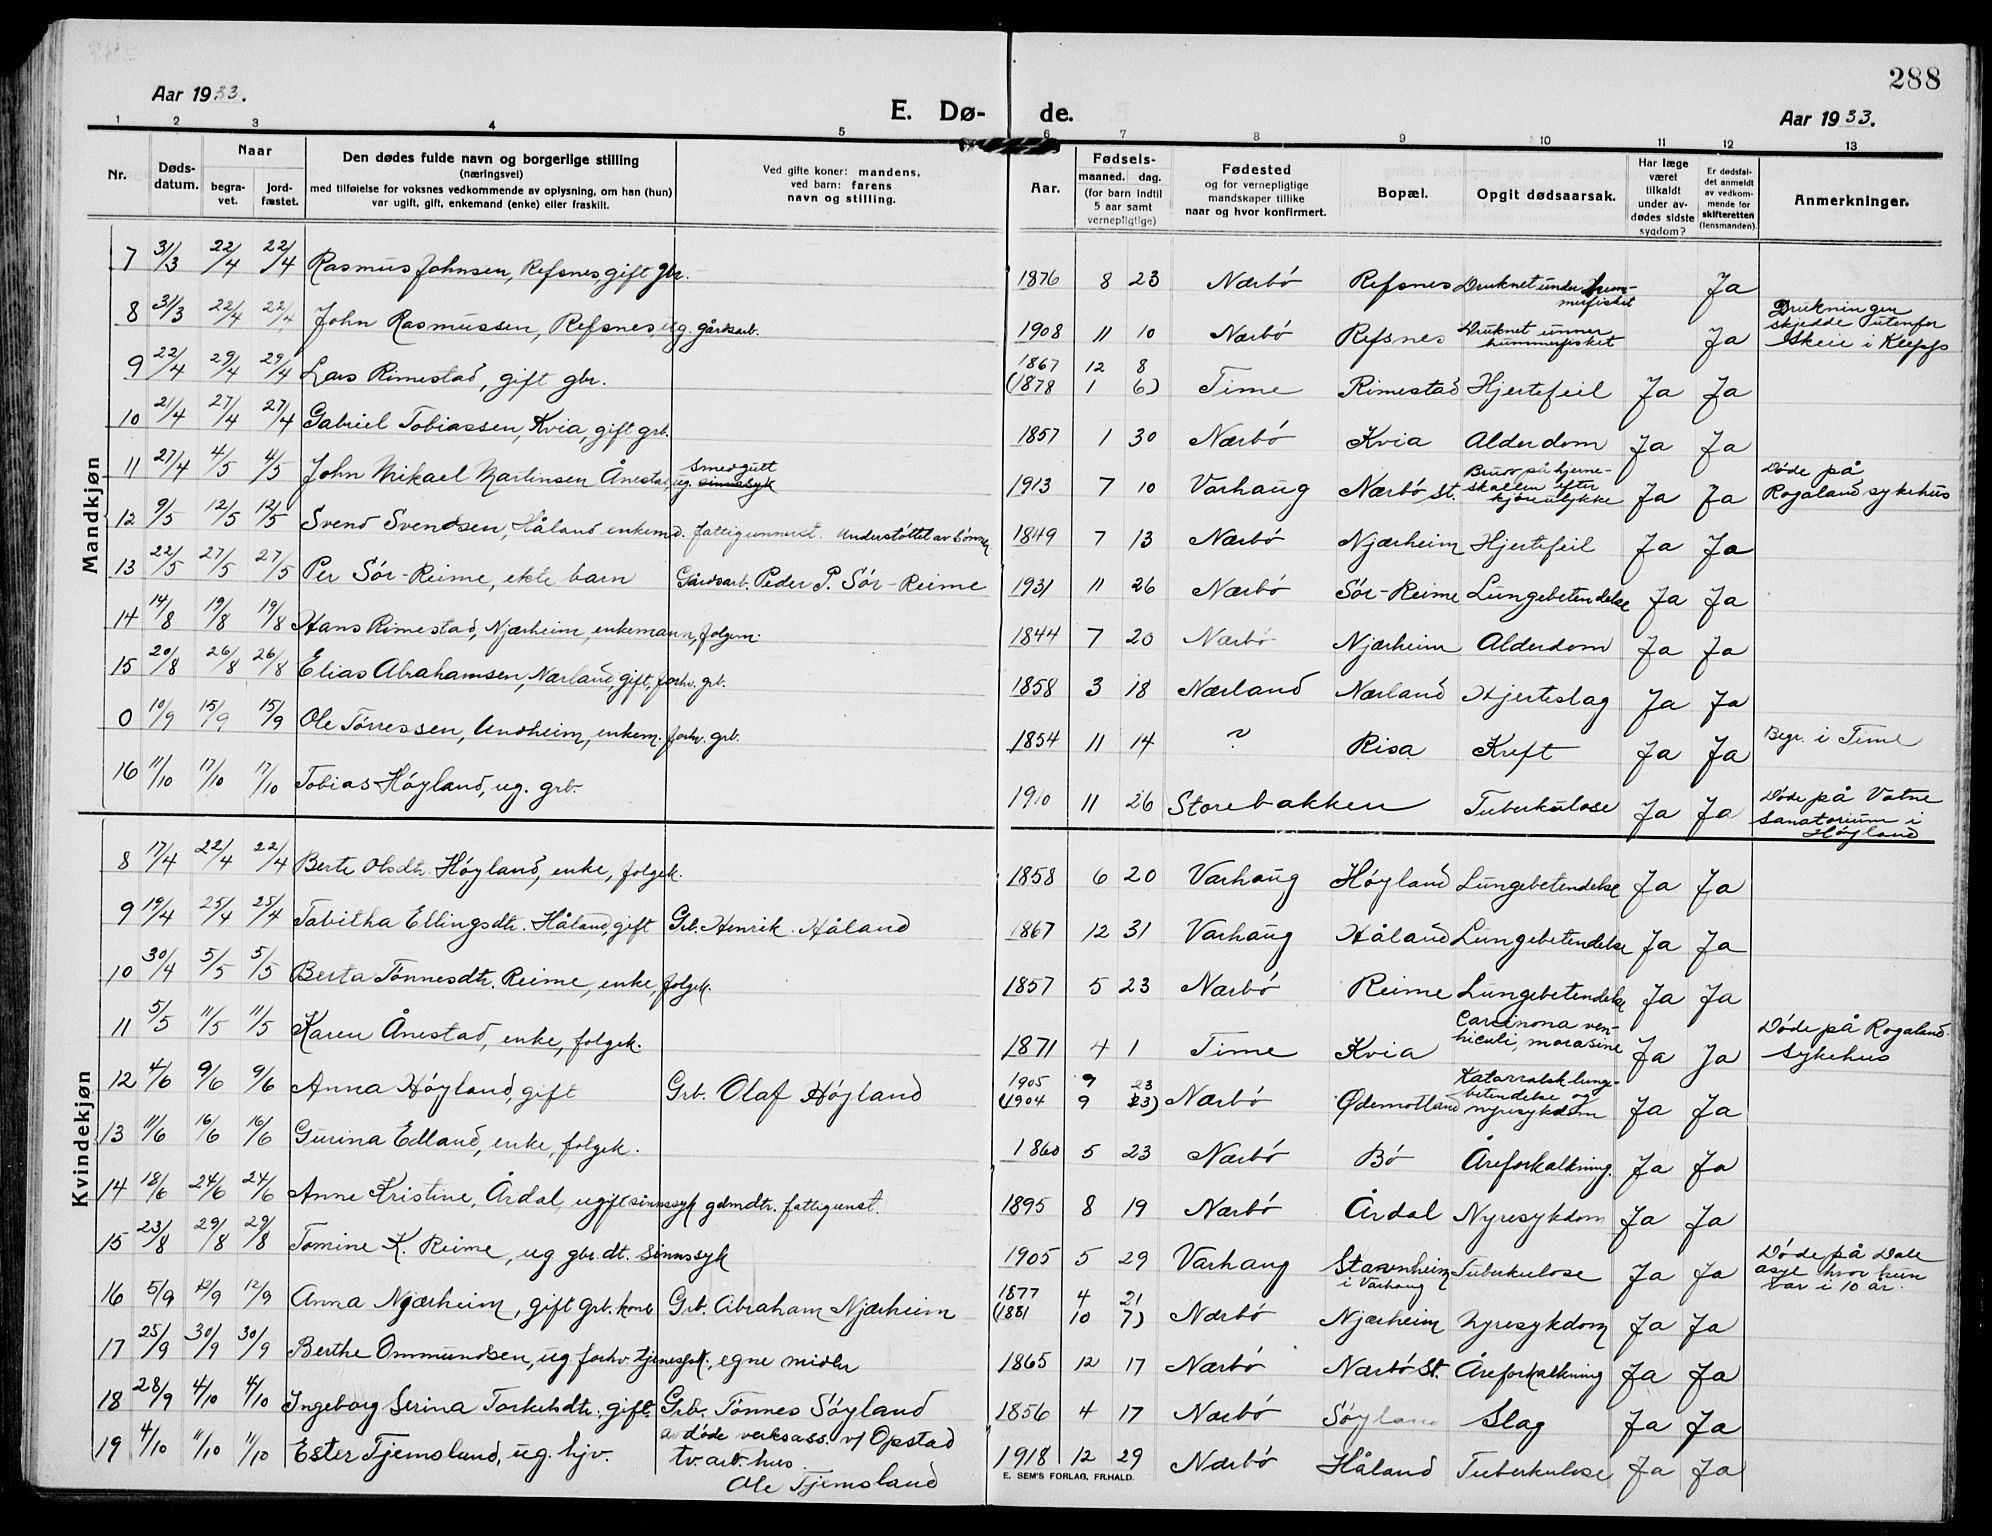 288
Aar 1933.
E. Dø- de.
Aar 1933.
1 2 3 4 5 6 7 8 9 10 11 12 13
Nr. Døds-datum. Naar begra-vet. jord-fæstet. Den dødes fulde navn og borgerlige stilling (næringsvei) med tilføielse for voksnes vedkommende av oplysning, om han (hun) var ugift, gift, enkemand (enke) eller fraskilt. Ved gifte koner: mandens, ved barn: farens navn og stilling. Aar. Fødsels- maaned. dag. (for barn indtil 5 aar samt vernepligtige) Fødested og for vernepligtige mandskaper tillike naar og hvor konfirmert. Bopæl. Opgit dødsaarsak. Har læge været tilkaldt under av-dødes sidste sygdom? Er dødsfal-det anmeldt av vedkom-mende for skifteretten (lensmanden). Anmerkninger.
Mandkjøn
7 31/3 22/4 22/4 Rasmus Johnsen, Refsnes, gift gbr. 1876 8 23 Nærbö Refsnes Druknet under hum-merfisket Ja
8 31/3 22/4 22/4 John Rasmussen, Refsnes, ug. gårdsarb. 1908 11 10 Nærbö Refsnes Druknet unner hummerfisket Ja Drukningen skjedde utenfor Skeie i Klepp
9 22/4 29/4 29/4 Lars Rimestad, gift gbr. 1867 12 8 (1878 1 6) Time Rimestad Hjertefeil Ja Ja
10 21/4 27/4 27/4 Gabriel Tobiassen, Kvia, gift grb. 1857 1 30 Nærbö Kvia Alderdom Ja Ja
11 27/4 4/5 4/5 John Mikael Martinsen Ånestad, ug. smedgutt sinnssyk 1913 7 10 Varhaug Nærbö St. Brudd på hjerne-skallen efter kjöreulykke Ja Ja Döde på Rogaland sykehus
12 9/5 12/5 12/5 Svend Svendsen, Håland enkemd. fattigunnerst. Understöttet av sönnen 1849 7 13 Nærbö Njærheim Hjertefeil Ja Ja
13 22/5 27/5 27/5 Per Sör-Reime, ekte barn Gårdsarb. Peder P. Sör-Reime 1931 11 26 Nærbö Sör-Reime Lungebetendelse Ja Ja
14 14/8 19/8 19/8 Hans Rimestad, Njærheim, enkemann, folgem. 1844 7 20 Nærbö Njærheim Alderdom Ja Ja
15 20/8 26/8 26/8 Elias Abrahamsen, Nærland, gift, forhv. grb. 1858 3 18 Nærland Nærland Hjerteslag Ja Ja
0 10/9 15/9 15/9 Ole Törressen, Undheim, enkem. forhv. grb. 1854 11 14 ? Risa Kreft Ja Ja Begr. i Time
16 11/10 17/10 17/10 Tobias Höyland, ug. grb. 1910 11 26 Storebakken Tuberkulose Ja Ja Döde på Vatne Sanatorium i Höyland
Kvindekjøn
8 17/4 22/4 22/4 Berte Olsdtr. Höyland, enke, folgek. 1858 6 20 Varhaug Höyland Lungebetendelse Ja Ja
9 19/4 25/4 25/4 Tabitha Ellingsdtr. Håland, gift Grb. Henrik Håland 1867 12 31 Varhaug Håland Lungebetendelse Ja Ja
10 30/4 5/5 5/5 Berta Tönnesdtr. Reime, enke, folgek. 1857 5 23 Nærbö Reime Lungebetendelse Ja Ja
11 5/5 11/5 11/5 Karen Ånestad, enke, folgek. 1871 4 1 Time Kvia Carcinona ven-hiculi, morasine Ja Ja Döde på Rogaland Sykehus
12 4/6 9/6 9/6 Anna Höyland, gift Grb. Olaf Höyland 1905 9 23 (1904 9 23) Nærbö Ödemotland Katarralsk lunge-betendelse og nyresykdom Ja Ja
13 11/6 16/6 16/6 Gurina Edland, enke, folgek. 1860 5 23 Nærbö Bö Åreforkalkning. Ja Ja
14 18/6 24/6 24/6 Anne Kristine, Årdal, ugift sinnssyk gdmdtr. fattigunst. 1895 8 19 Nærbö Årdal Nyresykdom Ja Ja
15 23/8 29/8 29/8 Tomine K. Reime, ug gbr. dt. sinnssyk 1905 5 29 Varhaug Stavnheim i Varhaug Tuberkulose Ja Ja Döde på Dale asyl hvor hun var i 10 år.
16 5/9 12/9 12/9 Anna Njærheim, gift grb. kone Grb. Abraham Njærheim 1877 4 21 (1881 10 7) Nærbö Njærheim Nyresykdom Ja Ja
17 25/9 30/9 30/9 Berthe Ommundsen, ug forhv. tjenesfolk., egne midler 1865 12 17 Nærbö Nærbö St. Åreforkalkning Ja Ja
18 28/9 4/10 4/10 Ingeborg Serina Torkelsdtr. gift. Grb. Tönnes Söyland 1856 4 17 Nærbö Söyland Slag Ja Ja
19 4/10 11/10 11/10 Ester Tjemsland, ug. hjv. avdöde verksass. v/ Opstad tv. arb. hus Ole Tjemsland 1918 12 29 Nærbö Håland Tuberkulose Ja Ja
E. SEM'S FORLAG, FR.HALD.